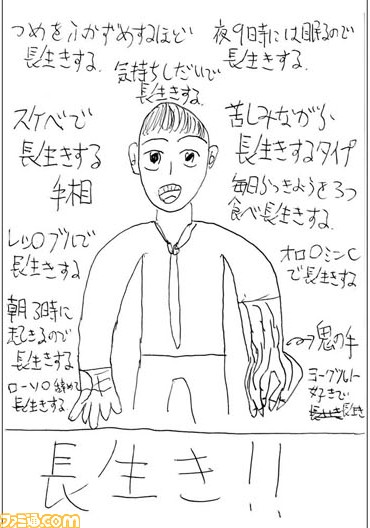 つめをふかずめするほど
長生きする.
夜9時には眠るので
長生きする.
気持ちしだいで
長生きする.
スケベで
長生きする
手相
苦しみながら
長生きするタイプ
毎日らっきょうを3つ
食べ長生きする.
レッ〇ブルで
長生きする
オロ〇ミンC
で長生きする
朝3時に
起きるので
長生きする
ロー〇ソ〇
長生きする
鬼の手
ヨーグルト
好きで
長生き
長生き!!
ファミ通.com